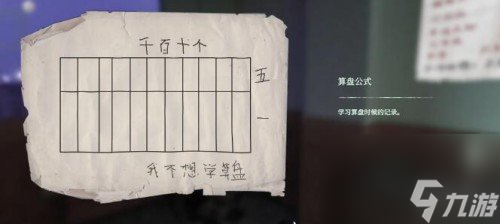 千百十个
五
一
我不想学算盘
算盘公式
学习算盘时候的记录。
九游